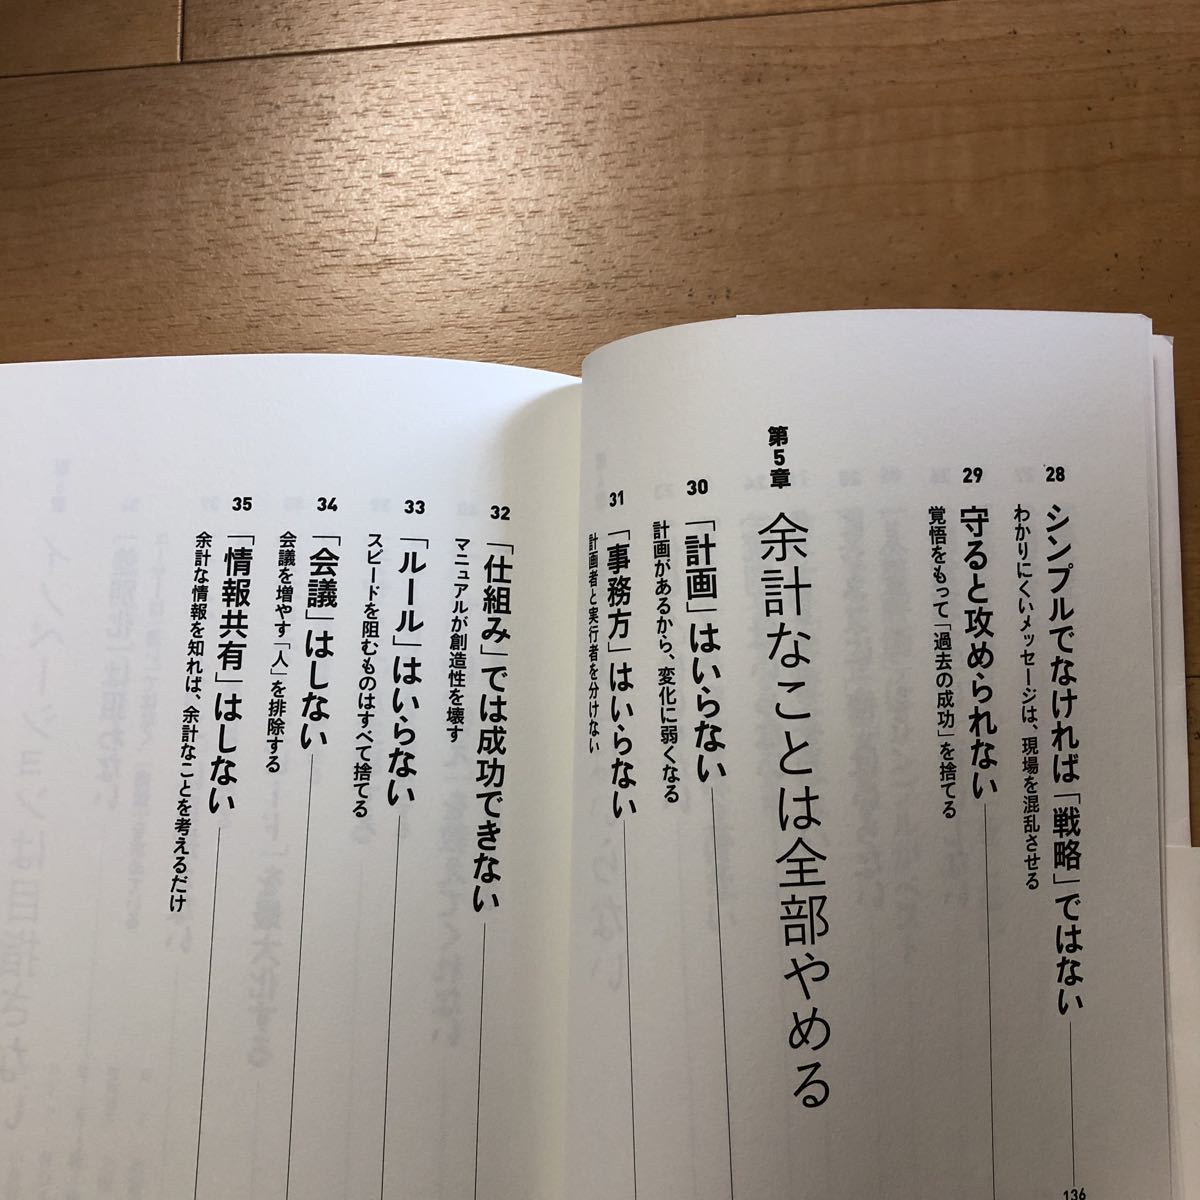 28 シンプルでなければ「戦略」ではない
わかりにくいメッセージは、現場を混乱させる
136
29 守ると攻められない
覚悟をもって「過去の成功」を捨てる
第5章 余計なことは全部やめる
30 「計画」はいらない
計画があるから、変化に弱くなる
31 「事務方」はいらない
計画者と実行者を分けない
32 「仕組み」では成功できない
マニュアルが創造性を壊す
33 「ルール」はいらない
スピードを阻むものはすべて捨てる
34 「会議」はしない
会議を増やす「人」を排除する
35 「情報共有」はしない
余計な情報を知れば、余計なことを考えるだけ